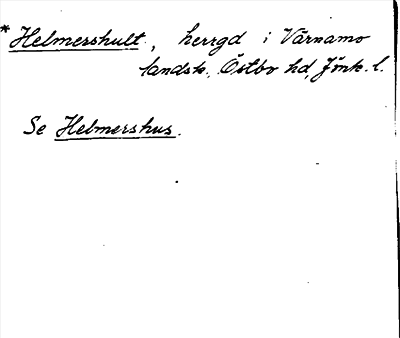 *Helmershult, herrgd i Värnamo
landsk. Östbo hd, Jönk. l.
Se Helmershus.